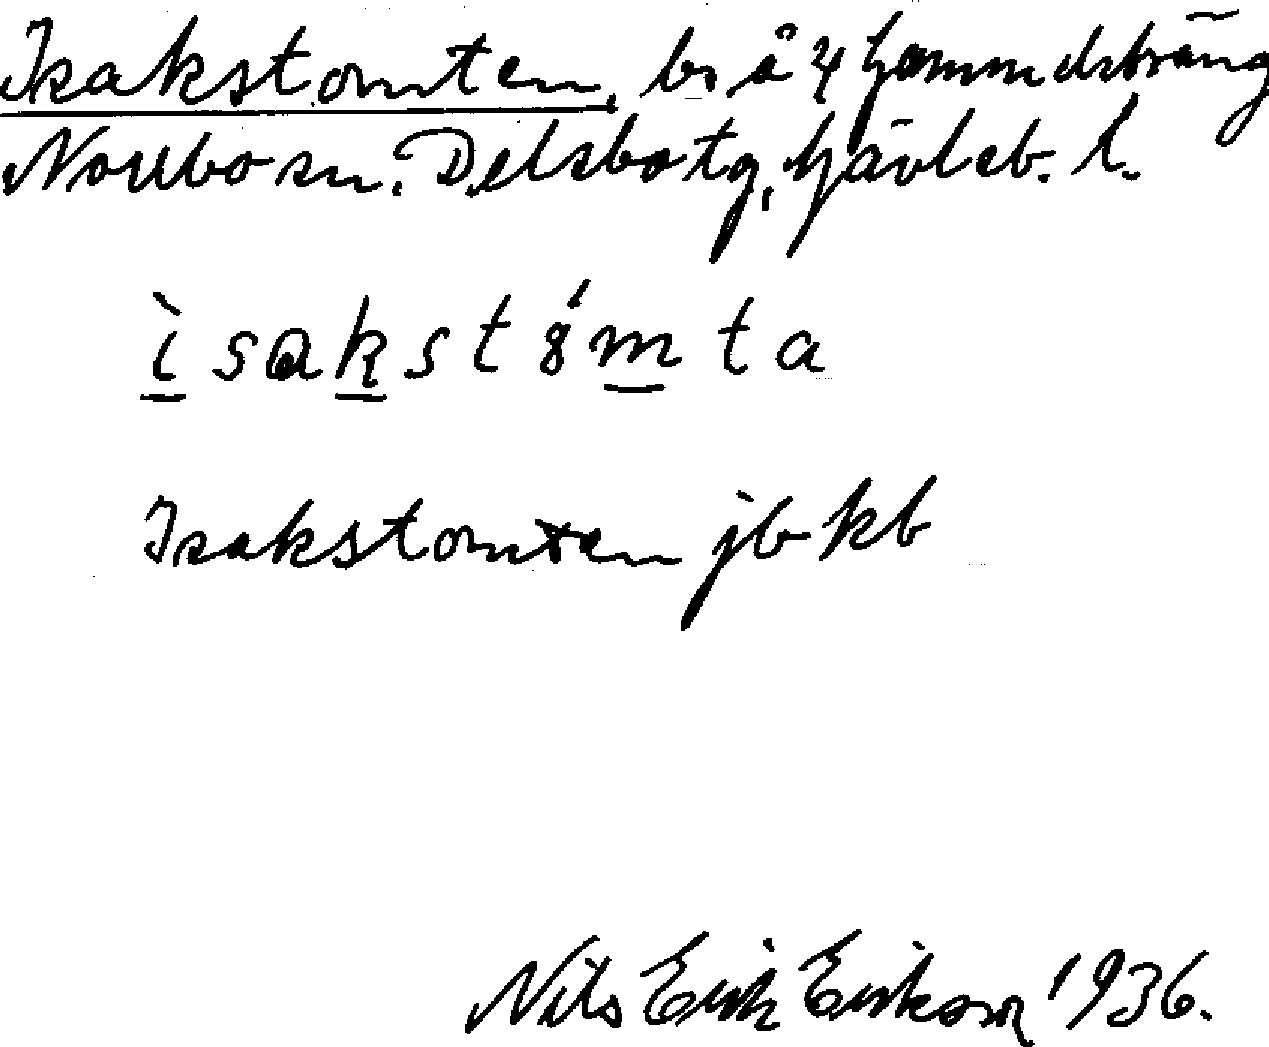 Isakstomten, bs å 4 Hammarsträng
Norrbo sn. Delsbo tg, Gävleb. l.
ìsakstómta
Isakstomten jb kb
Nils Erik Erikson 1936.